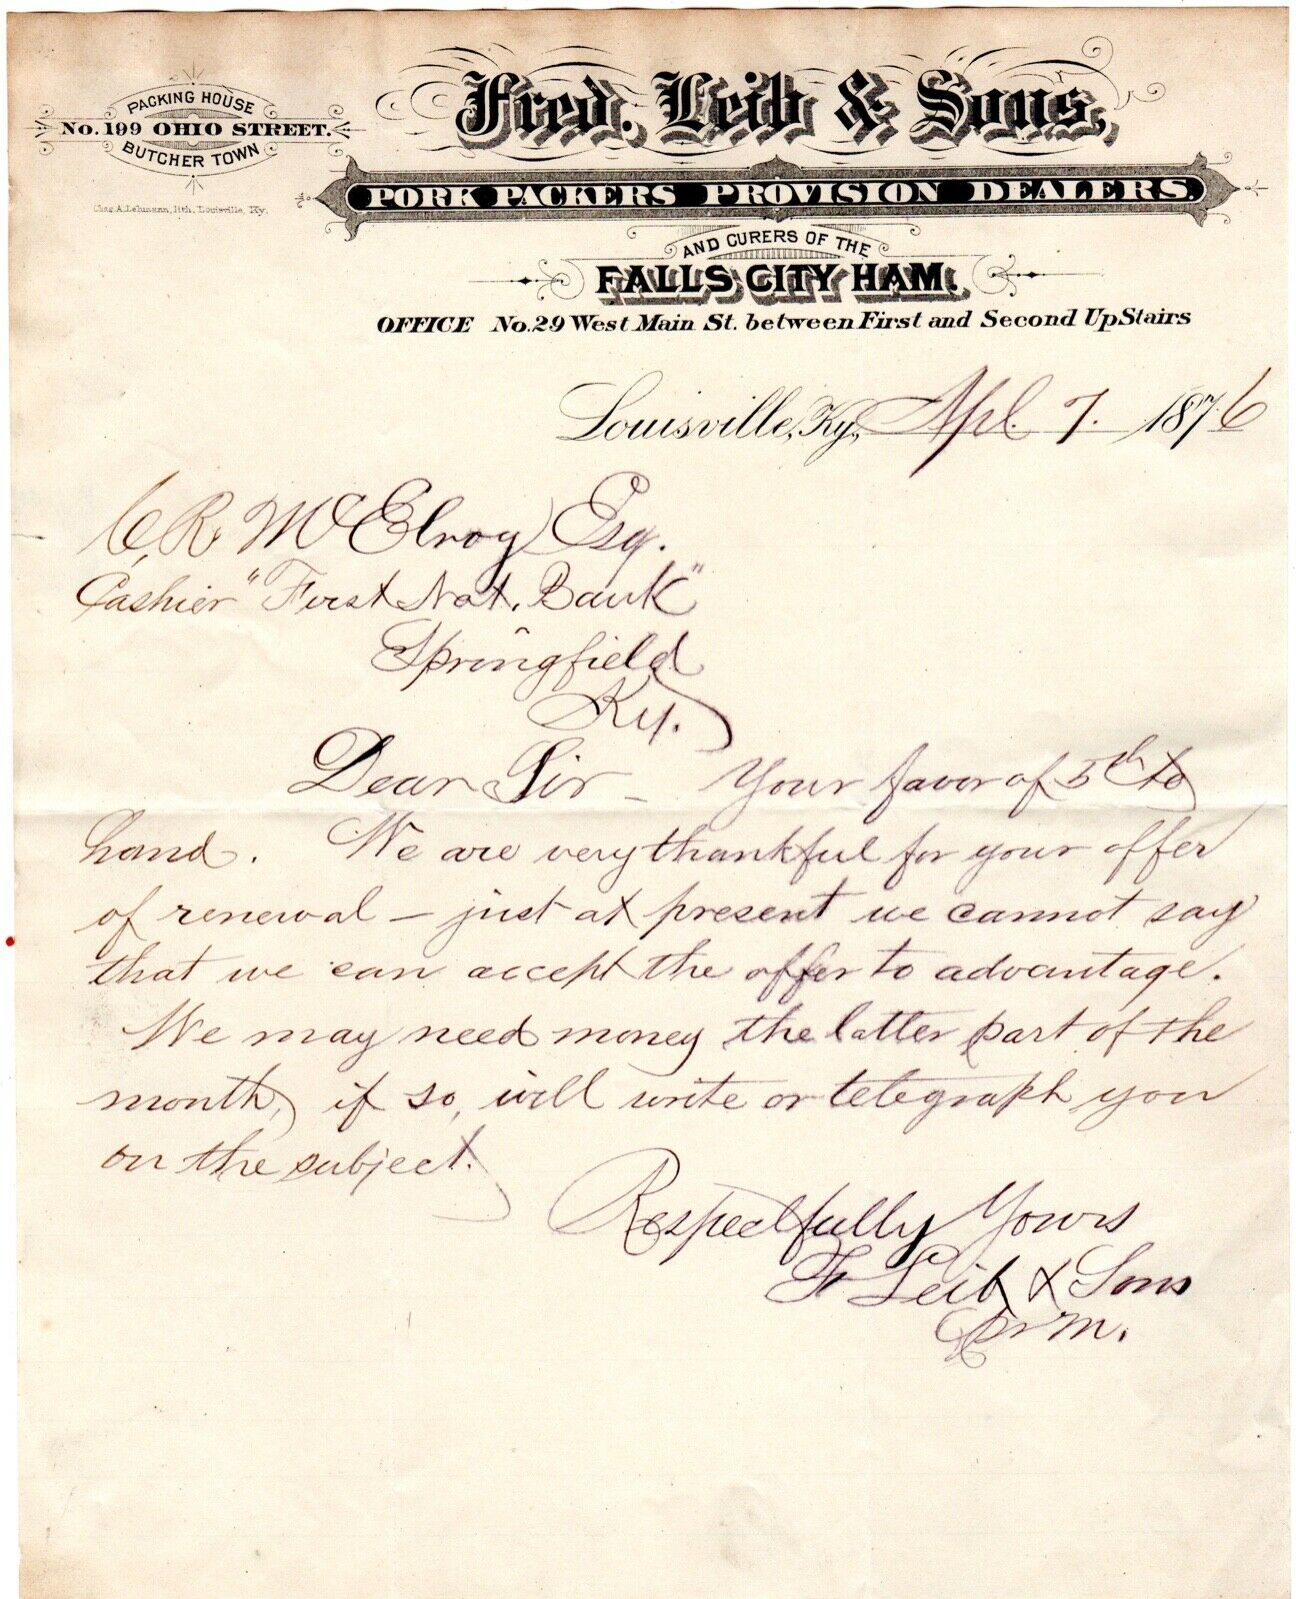 Fred. Leib & Sons,
PACKING HOUSE
No. 199 OHIO STREET.
BUTCHER TOWN
Chas. A. Lehmann, lith, Louisville, Ky.
PORK PACKERS PROVISION DEALERS.
AND CURERS OF THE
FALLS CITY HAM.
OFFICE No. 29 West Main St. between First and Second Up Stairs
Louisville, Ky, Apl. 7. 1876
C, R McElroy Esq.
Cashier "First Nat. Bank"
Springfield
Ky.
Dear Sir - Your favor of 5th to
hand. We are very thankful for your offer
of renewal - just at present we cannot say
that we can accept the offer to advantage.
We may need money the latter part of the
month, if so, will write or telegraph you
on the subject.
Respectfully Yours
F Leib & Sons